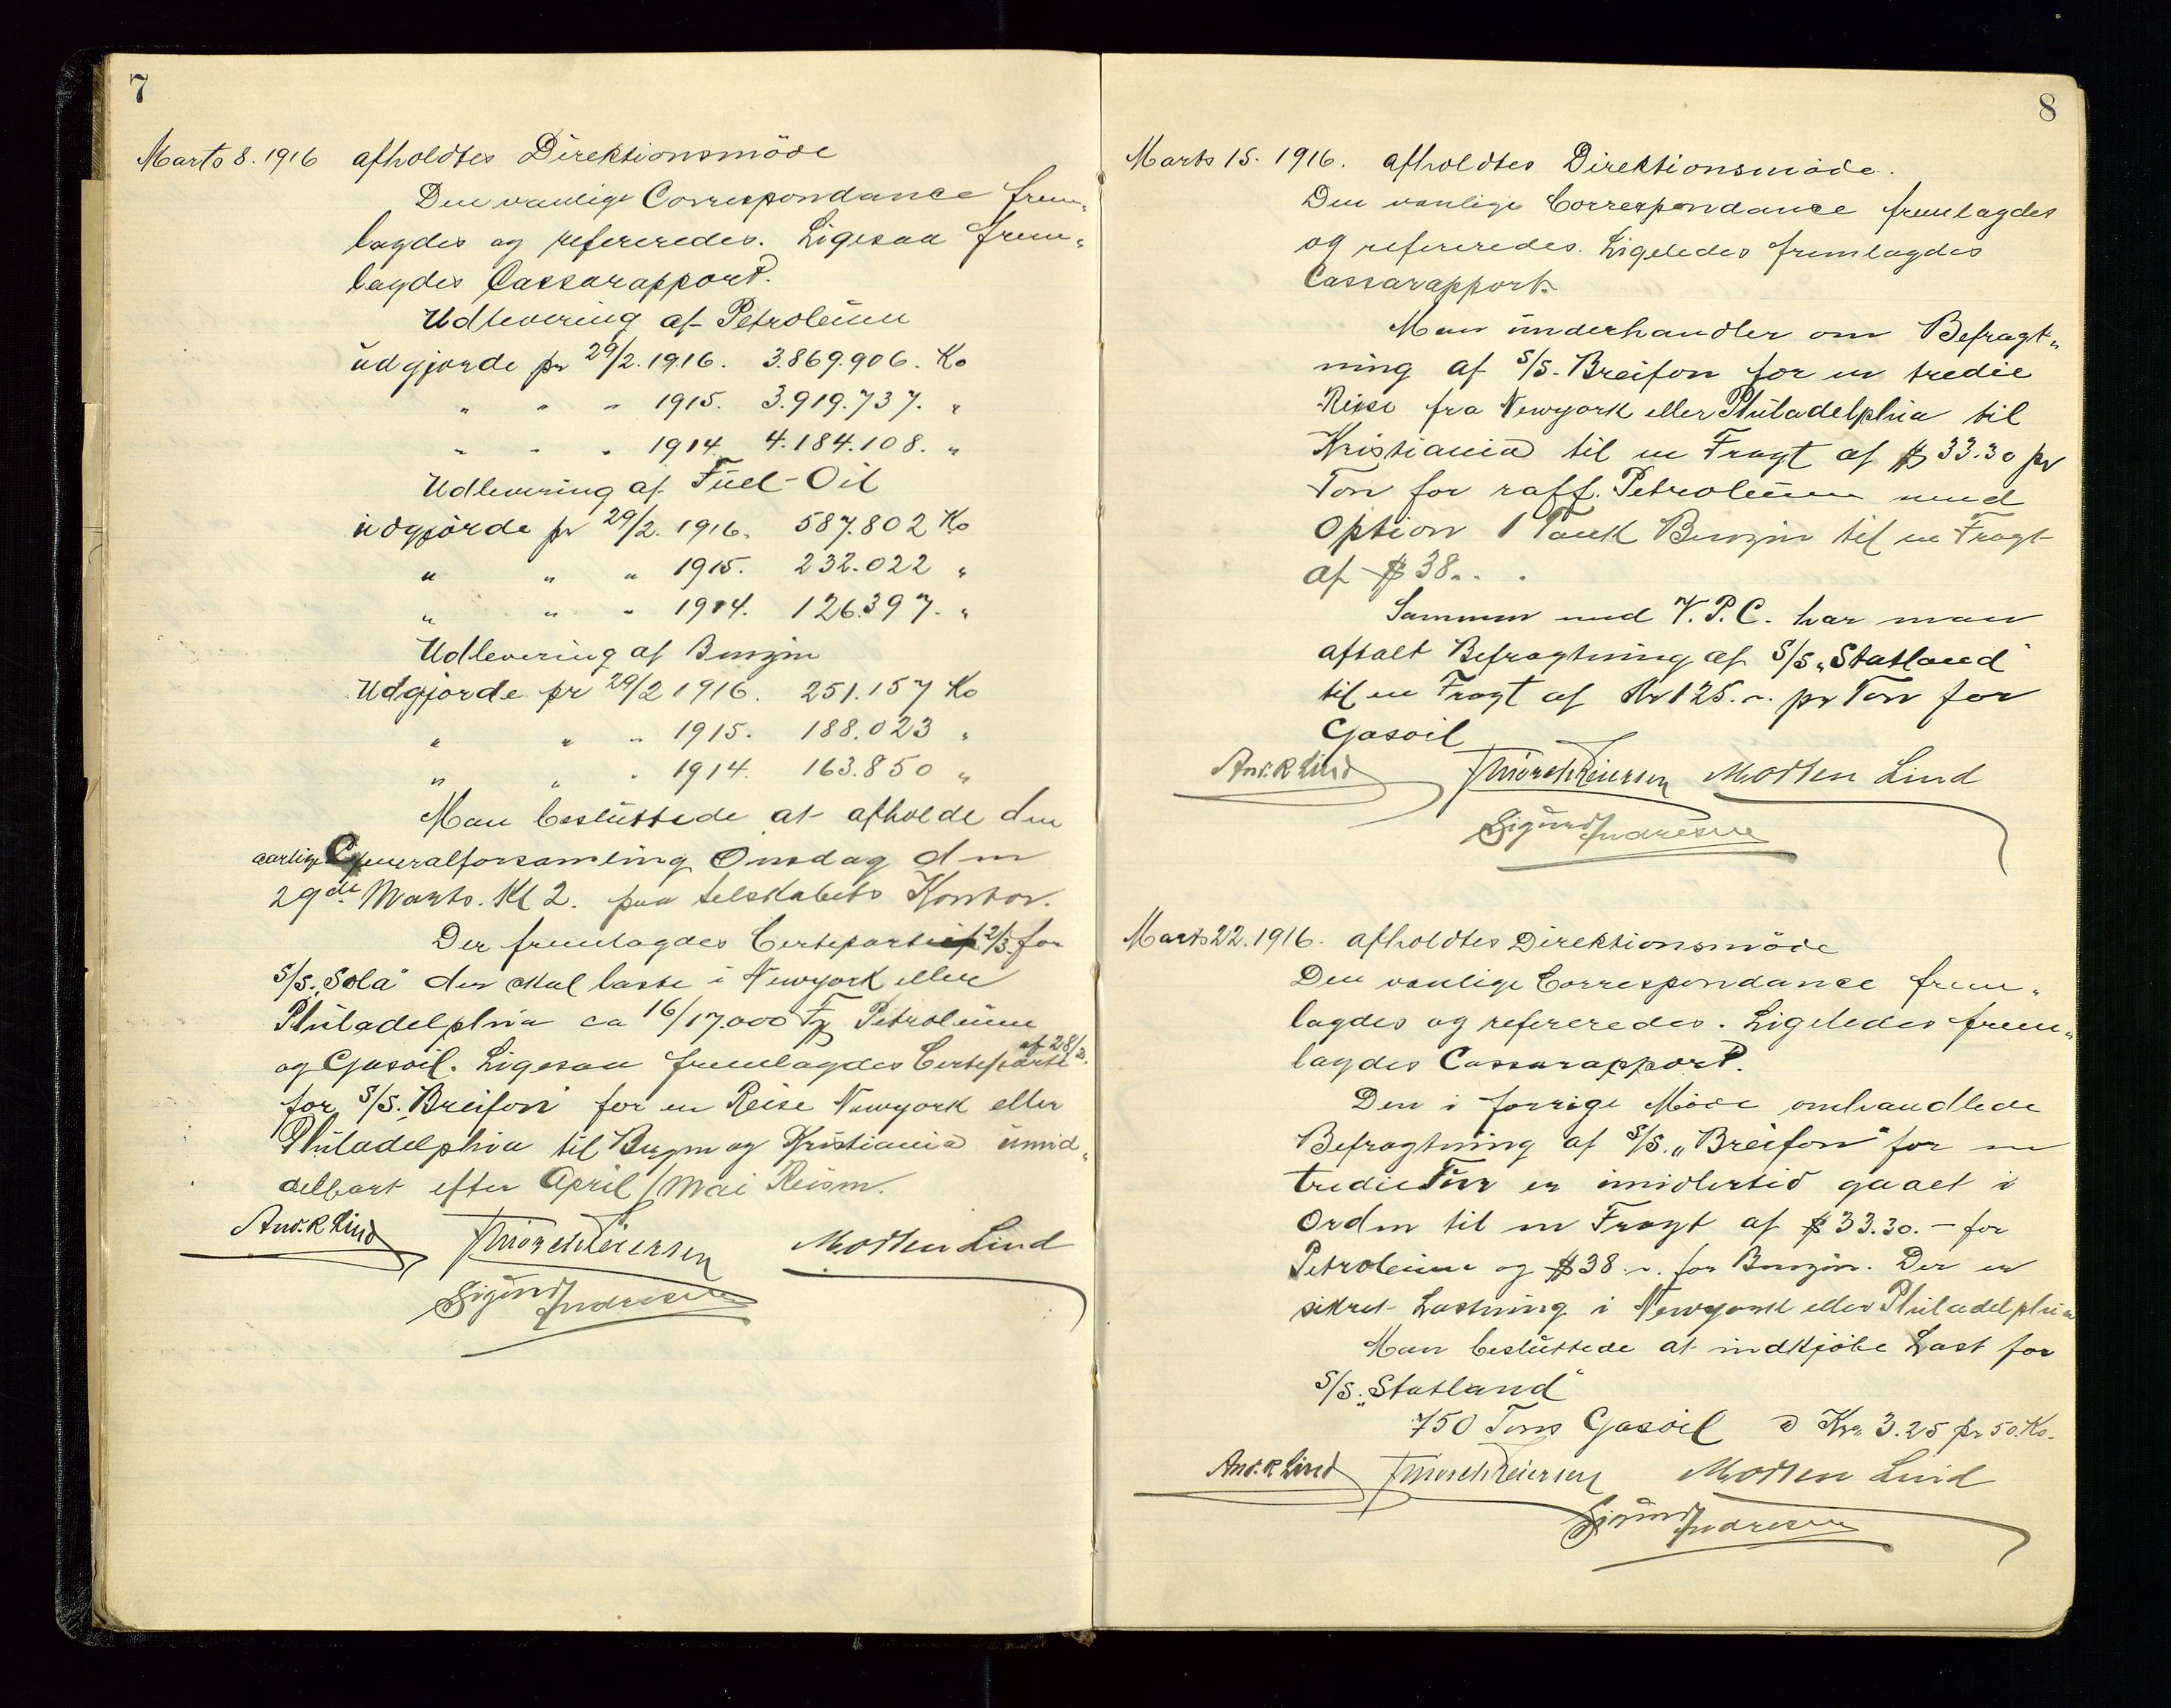 7
Marts 8. 1916 afholdtes Direktionsmöde
Den vanlige Correspondance frem„
lagdes og refereredes. Ligesaa frem„
lagdes Cassarapport.
Udlevering af Petroleum
udgjorde pr 29/2. 1916. 3.869.906. Ko
" " " 1915. 3.919.737. "
" " " 1914. 4.184.108. "
Udlevering af Fuel-Oil
udgjorde pr 29/2. 1916. 587.802 Ko
" " " 1915. 232.022 "
" " " 1914. 126.397. "
Udlevering af Benzin
Udgjorde pr 29/2 1916. 251.157 Ko
" " " 1915. 188.023 "
" " " 1914. 163.850 "
Man besluttede at afholde den
aarlige Generalforsamling Onsdag den
29de Marts. Kl 2. paa Selskabets Kontor.
Der fremlagdes Certeparti af 2/3. for
S/S. „Sola" der skal laste i Newyork eller
Philadelphia ca 16/17.000 Fg Petroleum
og Gasoil. Ligesaa fremlagdes Certeparti af 28/2.
for S/S. „Breifon" for en Reise Newyork eller
Philadelphia til Bergen og Kristiania umid„
delbart efter April/Mai Reisen.
And. R Lind Mörch Reiersen Morten Lind
Sigurd Andresen
8
Marts 15. 1916. afholdtes Direktionsmöde.
Den vanlige Correspondance fremlagdes
og refereredes. Ligeledes fremlagdes
Cassarapport.
Man underhandler om Befragt„
ning af S/S. Breifon for en tredie
Reise fra Newyork eller Philadelphia til
Kristiania til en Fragt af $ 33.30 pr
Ton for raff. Petroleum med
Option 1 Tank Benzin til en Fragt
af $ 38.-.
Sammen med V.P.C. har man
aftalt Befragtning af S/S „Statland"
til en Fragt af Kr 125.-. pr Ton for
Gasoil
And. R Lind Mörch Reiersen Morten Lind
Sigurd Andresen
Marts 22. 1916. afholdtes Direktionsmöde
Den vanlige Correspondance frem„
lagdes og refereredes. Ligeledes frem„
lagdes Cassarapport.
Den i forrige Möde omhandlede
Befragtning af S/S. „Breifon" for en
tredie Tur er imidlertid gaaet i
Orden til en Fragt af $ 33.30.- for
Petroleum og $ 38.-. for Benzin. Der er
sikret Lastning i Newyork eller Philadelphia
Man besluttede at indkjöbe Last for
S/S. „Statland"
750 Tons Gasoil a Kr. 3.25 pr 50. Ko.
And. R Lind Mörch Reiersen Morten Lind
Sigurd Andresen